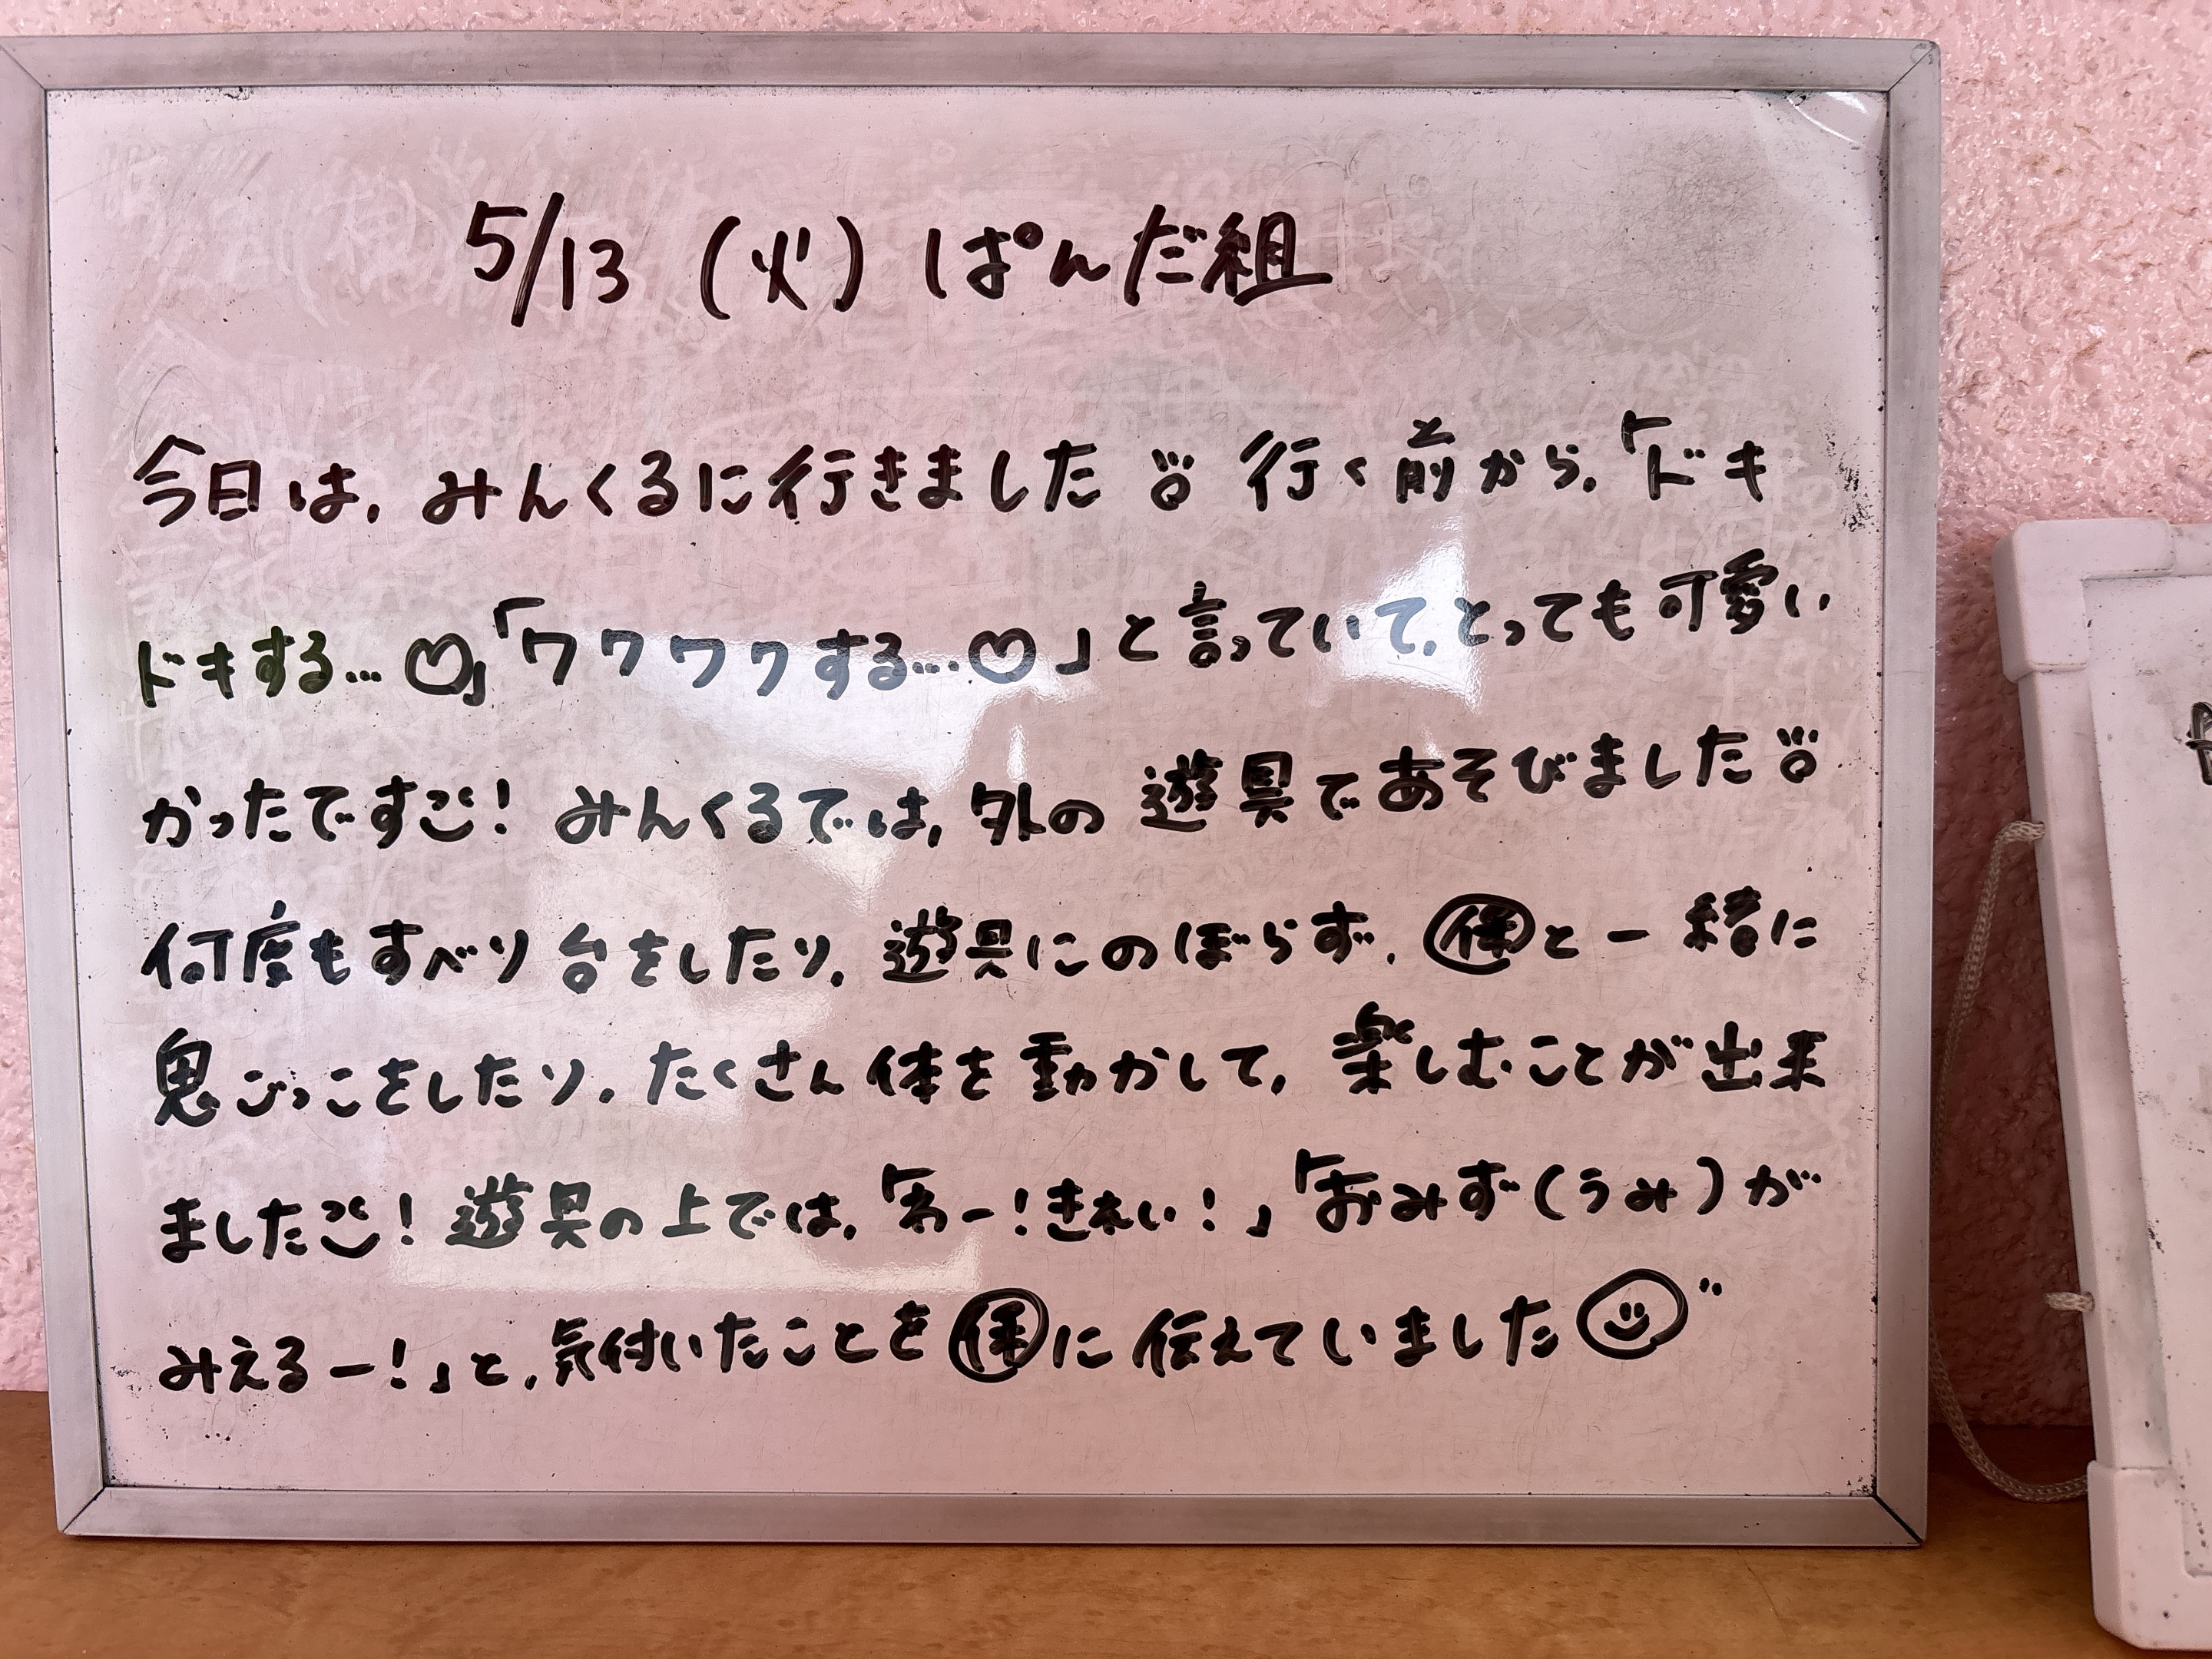 5/13 (火) ぱんだ組
今日は、みんくるに行きました!! 行く前から、「ドキ
ドキする…♡」「ワクワクする…♡」と言っていて、とっても可愛い
かったです! みんくるでは、外の遊具であそびました!!
何度もすべり台をしたり、遊具にのぼらず、㋭と一緒に
鬼ごっこをしたり、たくさん体を動かして、楽しむことが出来
ました! 遊具の上では、「わー!きれい!」「おみず(うみ)が
みえるー!」と、気付いたことを㋭に伝えていました